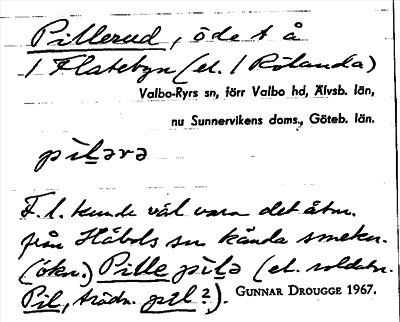 Pillerud, öde t å
1 Flatebyn (el. 1 Rölanda)
Valbo-Ryrs sn, förr Valbo hd, Älvsb. län,
nu Sunnervikens doms., Göteb. län.
pìlərə
F.l. kunde väl vara det åtm.
från Håbols sn kända smekn.
(ökn.) Pille pìlə (el. soldatn.
Pil, trädn. pil?). GUNNAR DROUGGE 1967.